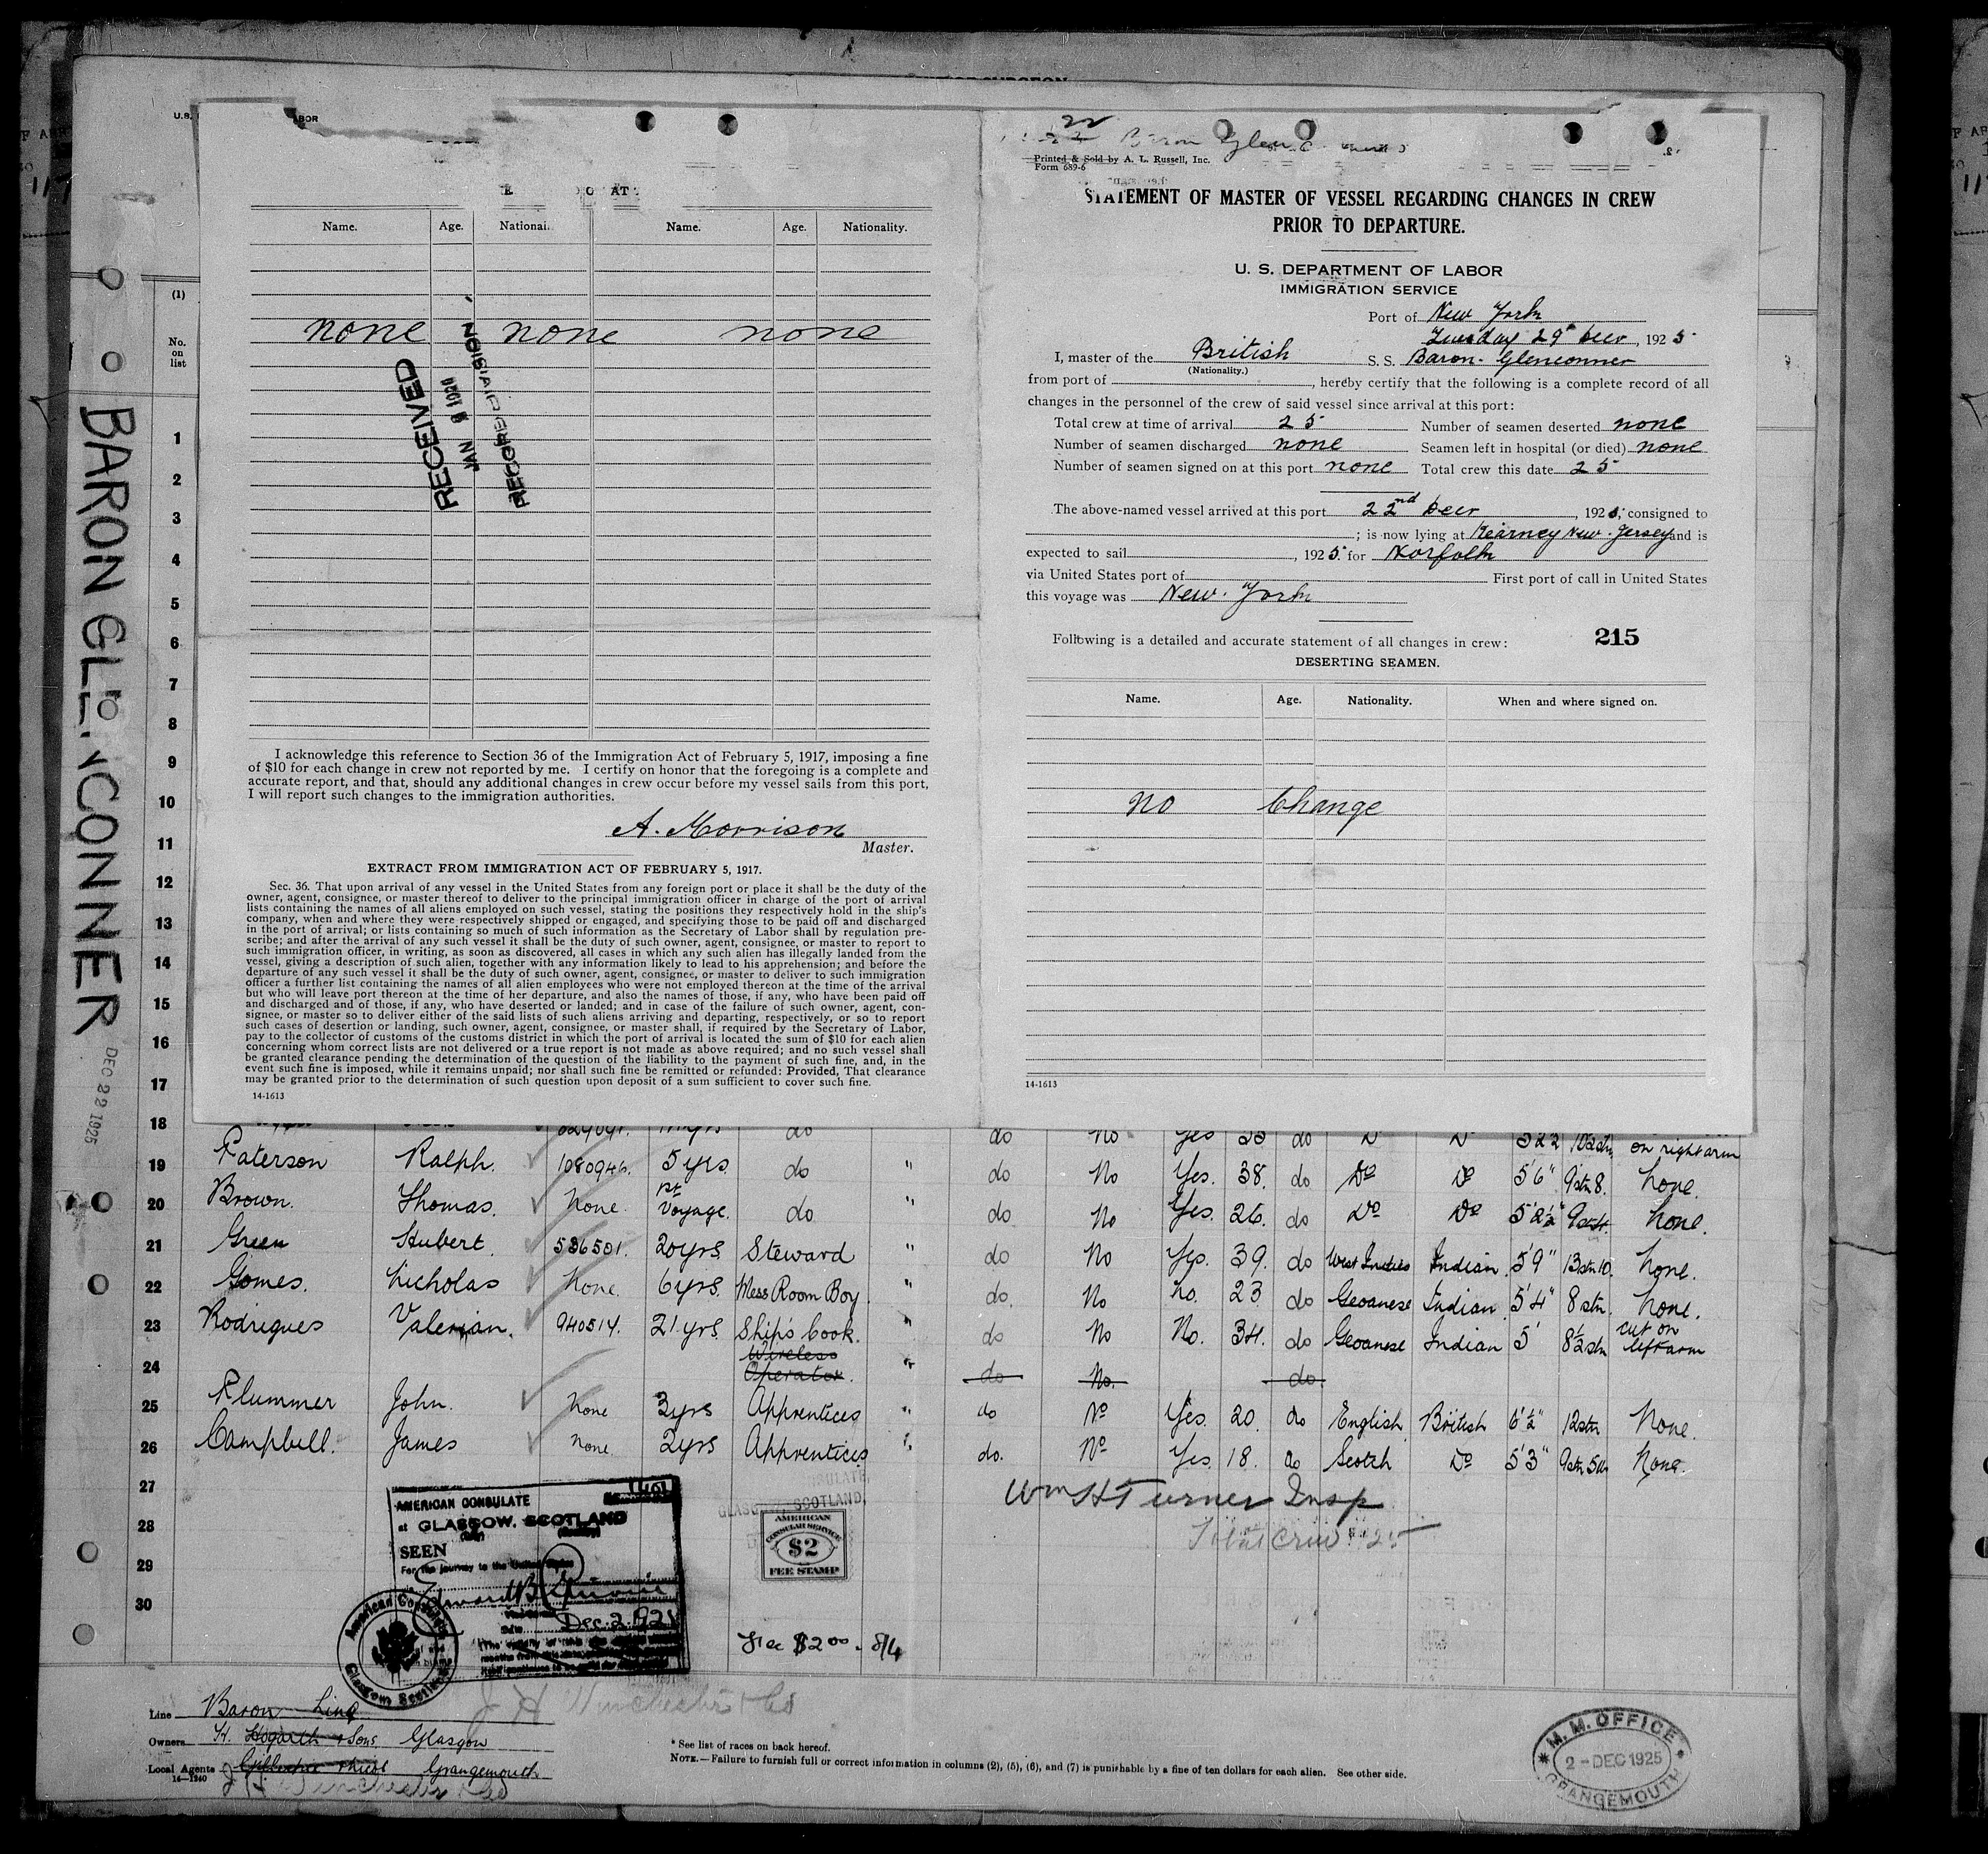 BARON GLENCONNER
DEC 22 1925
U.S.
Name. Age. Name. Age. Nationality.
none none none
RECEIVED
JAN
RECORD DIVISION
I acknowledge this reference to Section 36 of the Immigration Act of February 5, 1917, imposing a fine
of $10 for each change in crew not reported by me. I certify on honor that the foregoing is a complete and
accurate report, and that, should any additional changes in crew occur before my vessel sails from this port,
I will report such changes to the immigration authorities.
A. Morrison
Master.
EXTRACT FROM IMMIGRATION ACT OF FEBRUARY 5, 1917.
Sec. 36. That upon arrival of any vessel in the United States from any foreign port or place it shall be the duty of the
owner, agent, consignee, or master thereof to deliver to the principal immigration officer in charge of the port of arrival
lists containing the names of all aliens employed on such vessel, stating the positions they respectively hold in the ship's
company, when and where they were respectively shipped or engaged, and specifying those to be paid off and discharged
in the port of arrival; or lists containing so much of such information as the Secretary of Labor shall by regulation pre-
scribe; and after the arrival of any such vessel it shall be the duty of such owner, agent, consignee, or master to report to
such immigration officer, in writing, as soon as discovered, all cases in which any such alien has illegally landed from the
vessel, giving a description of such alien, together with any information likely to lead to his apprehension; and before the
departure of any such vessel it shall be the duty of such owner, agent, consignee, or master to deliver to such immigration
officer a further list containing the names of all alien employees who were not employed thereon at the time of the arrival
but who will leave port thereon at the time of her departure, and also the names of those, if any, who have been paid off
and discharged and of those, if any, who have deserted or landed; and in case of the failure of such owner, agent, con-
signee, or master so to deliver either of the said lists of such aliens arriving and departing, respectively, or so to report
such cases of desertion or landing, such owner, agent, consignee, or master shall, if required by the Secretary of Labor,
pay to the collector of customs of the customs district in which the port of arrival is located the sum of $10 for each alien
concerning whom correct lists are not delivered or a true report is not made as above required; and no such vessel shall
be granted clearance pending the determination of the question of the liability to the payment of such fine, and, in the
event such fine is imposed, while it remains unpaid; nor shall such fine be remitted or refunded: Provided, That clearance
may be granted prior to the determination of such question upon deposit of a sum sufficient to cover such fine.
14-1613
Printed & Sold by A. L. Russell, Inc.
Form 689-6
STATEMENT OF MASTER OF VESSEL REGARDING CHANGES IN CREW
PRIOR TO DEPARTURE.
U. S. DEPARTMENT OF LABOR
IMMIGRATION SERVICE
Port of New York
Tuesday 29th Decr, 1925
I, master of the British S. S. Baron-Glenconner
(Nationality.)
from port of , hereby certify that the following is a complete record of all
changes in the personnel of the crew of said vessel since arrival at this port:
Total crew at time of arrival 25 Number of seamen deserted none
Number of seamen discharged none Seamen left in hospital (or died) none
Number of seamen signed on at this port none Total crew this date 25
The above-named vessel arrived at this port 22nd Decr, 1925, consigned to
; is now lying at Kearney New. Jersey and is
expected to sail , 1925. for Norfolk
via United States port of First port of call in United States
this voyage was New. York
Following is a detailed and accurate statement of all changes in crew: 215
DESERTING SEAMEN.
Name. Age. Nationality. When and where signed on.
no Change
14-1613
(1)
No.
on
list
1
2
3
4
5
6
7
8
9
10
11
12
13
14
15
16
17
18 do do No Yes 33 do Do Do on right arm
19 Paterson Ralph. 1080946. 5 yrs. do " do No Yes. 38. do Do Do 5'6" 9stn 8. None.
20 Brown. Thomas. None. 1st Voyage. do " do No Yes. 26. do Do Do 5'2½" None.
21 Green Hubert. 536501. 20 yrs. Steward " do No Yes. 39. do West Indies Indian. 5'9" 13stn 10. None.
22 Gomes. Nicholas None. 6 yrs. Mess Room Boy. " do. No No. 23 do Geoanese Indian. 5'4" 8 stn. None.
23 Rodrigues Valerian. 940514. 21 yrs. Ship's Cook. " do No No. 34. do Geoanese Indian 5' 8½ stn cut on left arm
24 Wireless Operator. " do No. do.
25 Plummer John. None 3 yrs Apprentices " do No Yes. 20. do English British 6'½" 12stn None.
26 Campbell. James None 2 yrs Apprentices " do. No Yes 18. do Scotch Do 5'3" None.
27
28
29
30
Wm H Turner Insp
Total Crew 25
AMERICAN CONSULATE
at GLASGOW, SCOTLAND
SEEN
For the journey to the United States
Dec. 2. 1925
American Consulate
Glasgow Scotland
GLASGOW, SCOTLAND,
AMERICAN
CONSULAR SERVICE
$2
FEE STAMP
Fee $2.00 = 8/4
J H Winchester & Co
Line Baron Line
Owners H. Hogarth & Sons. Glasgow
Local Agents Grangemouth
14-1240
J H Winchester & Co
* See list of races on back hereof.
NOTE.—Failure to furnish full or correct information in columns (2), (5), (6), and (7) is punishable by a fine of ten dollars for each alien. See other side.
M.M. OFFICE
2-DEC 1925
GRANGEMOUTH